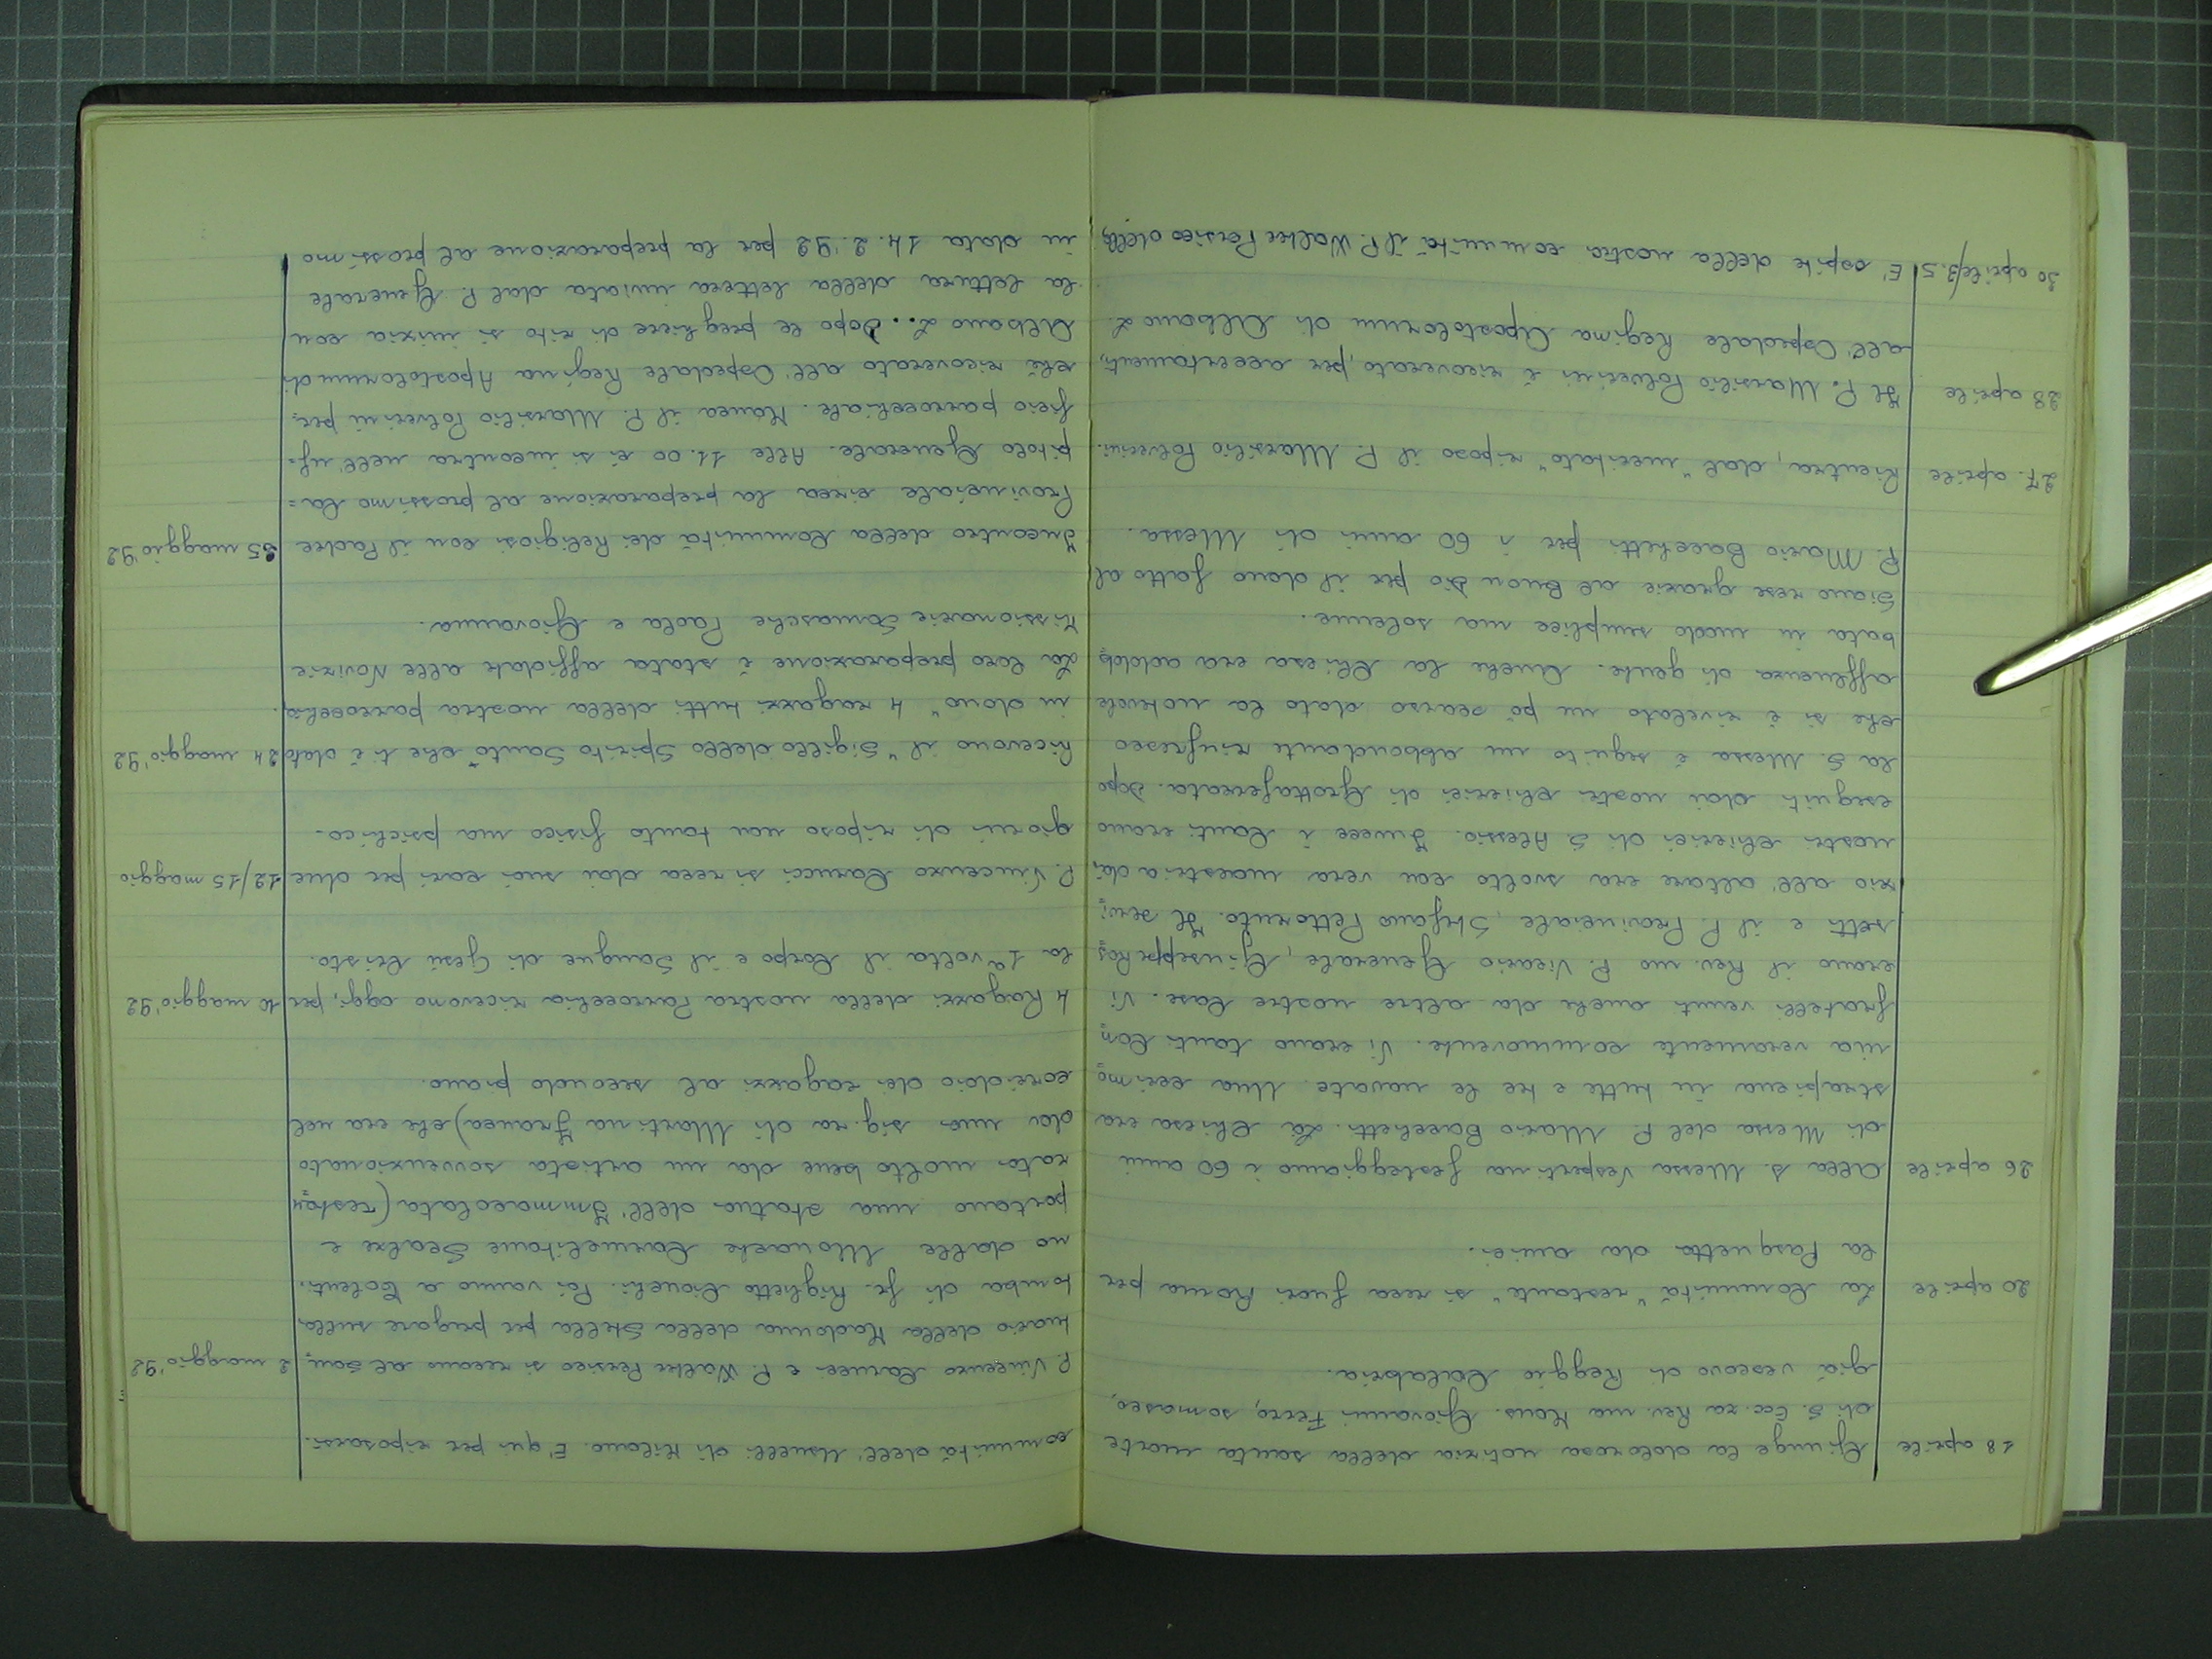 18 aprile Giunge la dolorosa notizia della santa morte
di S. Ecc.za Rev.ma Mons. Giovanni Ferro, somasco,
già vescovo di Reggio Calabria.
20 aprile La Comunità "restante" si reca fuori Roma per
la Pasquetta da amici.
26 aprile Alla S. Messa vespertina festeggiamo i 60 anni
di Messa del P. Mario Bacchetti. La Chiesa era
strapiena in tutte e tre le navate. Una cerimo
nia veramente commovente. Vi erano tanti Con
fratelli venuti anche da altre nostre Case. Vi
erano il Rev.mo P. Vicario Generale, Giuseppe Ros
setti e il P. Provinciale, Stefano Pettoruto. Il servi
zio all'altare era svolto con vera maestria dai
nostri chierici di S. Alessio. Invece i Canti erano
eseguiti dai nostri chierici di Grottaferrata. Dopo
la S. Messa è seguito un abbondante rinfresco
che si è rivelato un pò scarso data la notevole
affluenza di gente. Anche la Chiesa era addob
bata in modo semplice ma solenne.
Siano rese grazie al Buon Dio per il dono fatto al
P. Mario Bacchetti per i 60 anni di Messa.
27. aprile Rientra, dal "meritato" riposo il P. Marsilio Polverini.
28 aprile Il P. Marsilio Polverini è ricoverato, per accertamenti,
all'Ospedale Regina Apostolorum di Albano L.
30 aprile/3.5 E' ospite della nostra comunità il P. Walter Persico della
comunità dell'Usuelli di Milano. E' qui per riposarsi.
P. Vincenzo Carucci e P. Walter Persico si recano al San 2 maggio '92
tuario della Madonna della Stella per pregare sulla
tomba di fr. Righetto Cionchi. Poi vanno a
no dalle Monache Carmelitane Scalze e
portano una statua dell'Immacolata (restau
rata molto bene da un artista sovvenzionato
da una sig.ra di Martina Franca) che era nel
corridoio dei ragazzi al secondo piano.
4 Ragazzi della nostra Parrocchia ricevono oggi, per 10 maggio '92
la 1ª volta il Corpo e il Sangue di Gesù Cristo.
P. Vincenzo Carucci si reca dai suoi cari per due 12/15 maggio
giorni di riposo non tanto fisico ma psichico.
Ricevono il "Sigillo dello Spirito Santo che ti è dato 24 maggio '92
in dono" 4 ragazzi tutti della nostra parrocchia.
La loro preparazione è stata affidata alle Novizie
Missionarie Somasche Paola e Giovanna.
Incontro della Comunità dei Religiosi con il Padre 25 maggio '92
Provinciale circa la preparazione al prossimo Ca=
pitolo Generale. Alle 11.00 ci si incontra nell'uf=
ficio parrocchiale. Manca il P. Marsilio Polverini per=
chè ricoverato all'Ospedale Regina Apostolorum di
Albano L.. Dopo le preghiere di rito si inizia con
la lettura della lettera inviata dal P. Generale
in data 14.2.'92 per la preparazione al prossimo